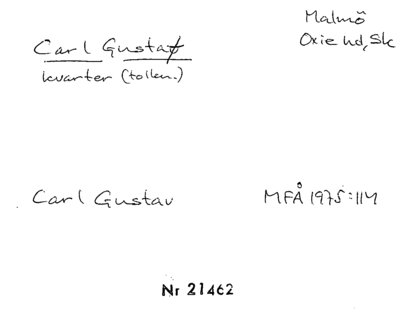 Carl Gustaf
kvarter (tolkn.)
Malmö
Oxie hd, Sk
Carl Gustav
MFÅ 1975:114
Nr 21462